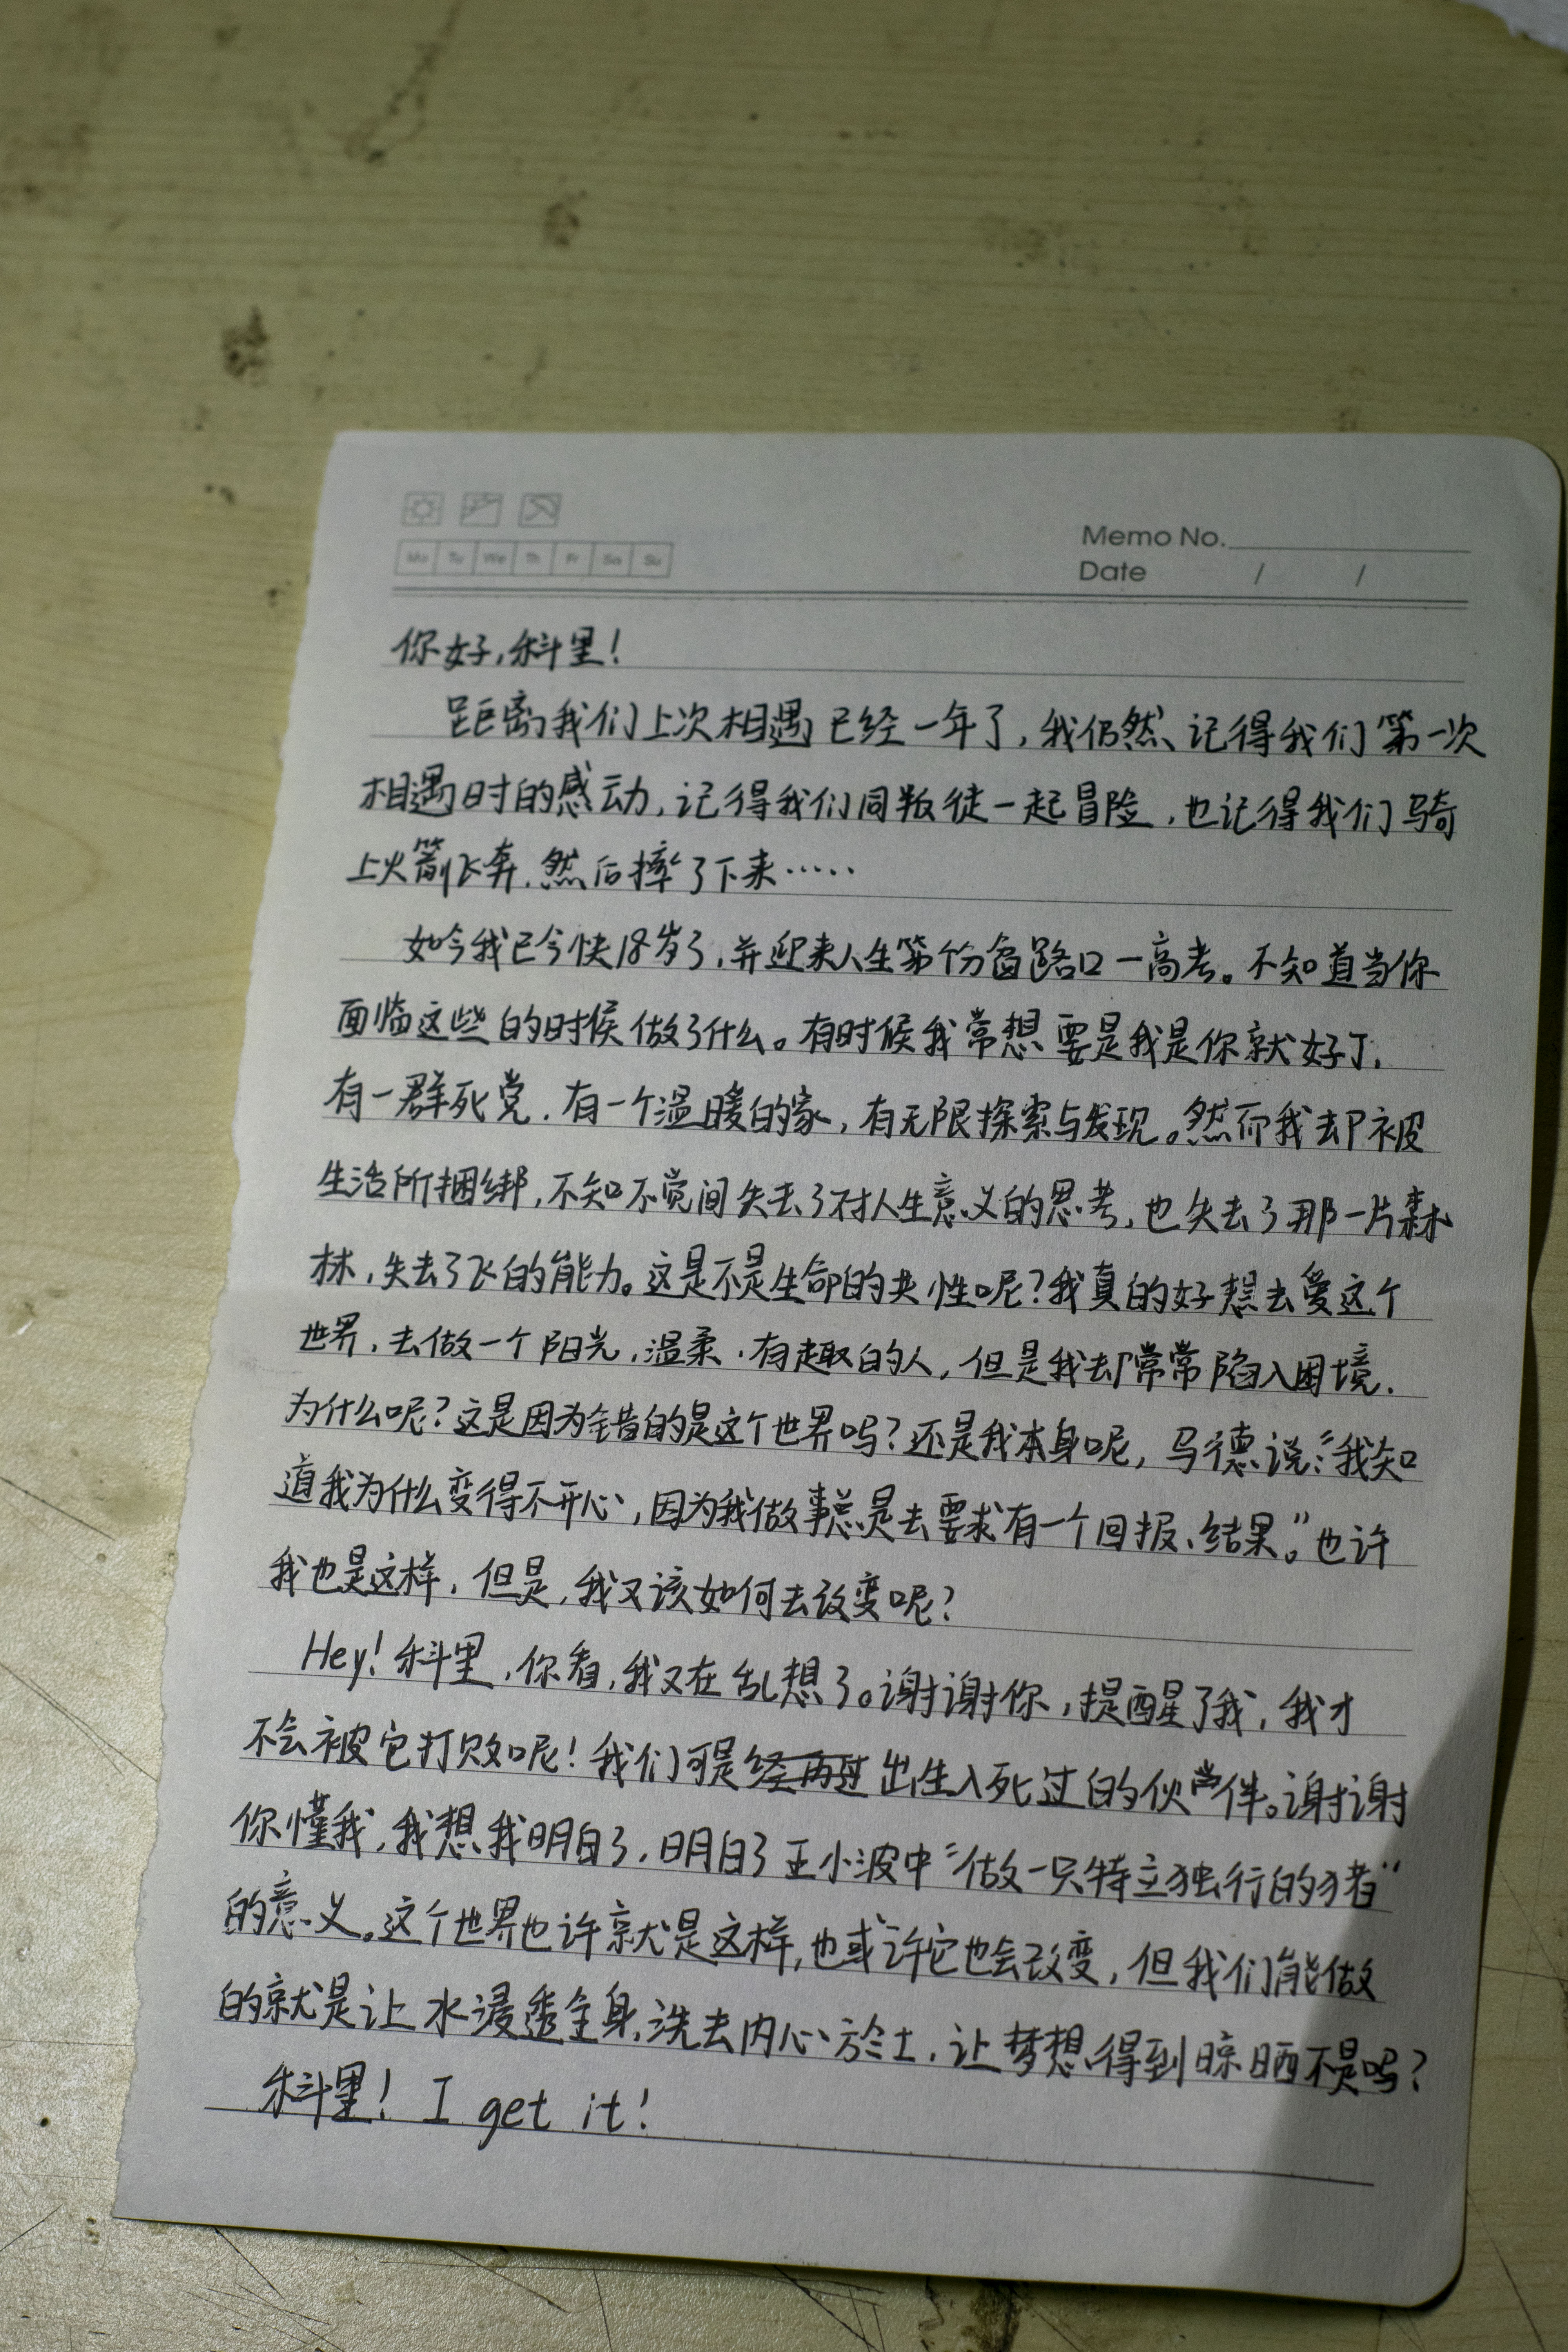 Mo Tu We Th Fr Sa Su
Memo No.
Date / /
你好,科里!
距离我们上次相遇已经一年了,我仍然记得我们第一次
相遇时的感动,记得我们同叛徒一起冒险,也记得我们骑
上火箭飞奔,然后摔了下来……
如今我已今快18岁了,并迎来人生第个分岔路口—高考。不知道当你
面临这些的时候做了什么。有时候我常想要是我是你就好了,
有一群死党,有一个温暖的家,有无限探索与发现。然而我却被
生活所捆绑,不知不觉间失去了对人生意义的思考,也失去了那一片森
林,失去了飞的能力。这是不是生命的共性呢?我真的好想去爱这个
世界,去做一个阳光,温柔,有趣的人,但是我却常常陷入困境.
为什么呢?这是因为错的是这个世界吗?还是我本身呢,马德说:“我知
道我为什么变得不开心,因为我做事总是去要求有一个回报、结果。”也许
我也是这样,但是,我又该如何去改变呢?
Hey!科里,你看,我又在乱想了。谢谢你,提醒了我,我才
不会被它打败呢!我们可是出生入死过的伙伴。谢谢
你懂我,我想我明白了,明白了王小波中“做一只特立独行的猪”
的意义。这个世界也许就是这样,也或许它也会改变,但我们能做
的就是让水浸透全身,洗去内心於土,让梦想得到晾晒不是吗?
科里! I get it!